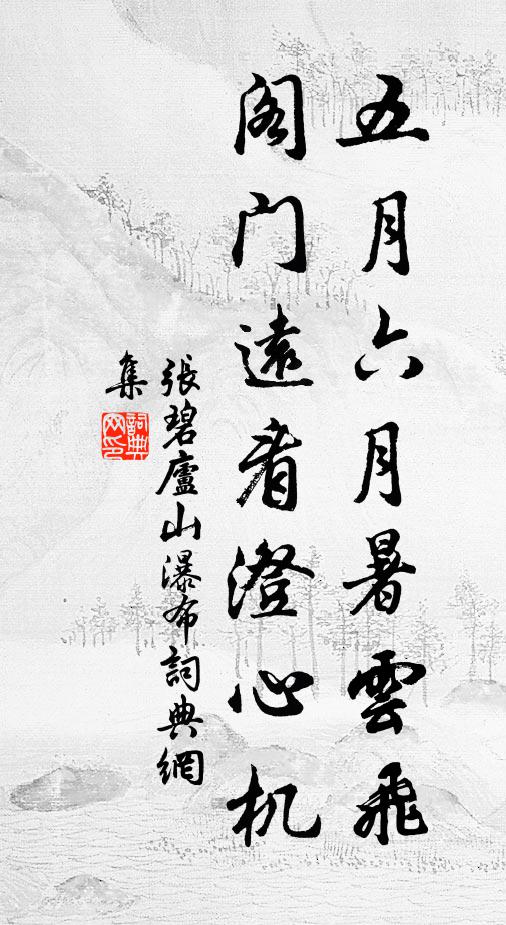 五月六月暑雲飛
阁门遠看澄心机
張碧廬山瀑布詞典網
集
詞典
网印